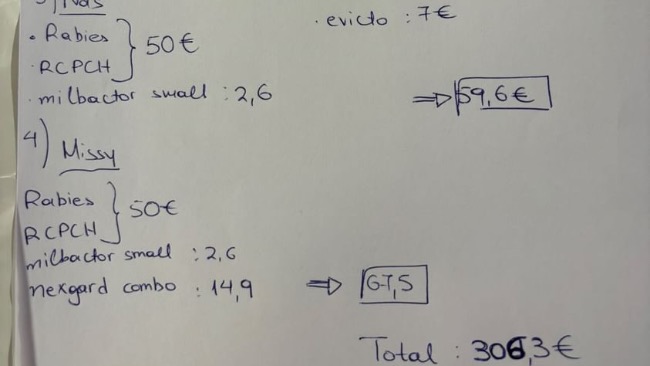 3)
· evicto : 7€
· Rabies
· RCPCH } 50€
· milbactor small : 2,6
⇒ 59,6€
4) Missy
Rabies
RCPCH } 50€
milbactor small : 2,6
nexgard combo : 14,9 ⇒ 67,5
Total : 306,3€